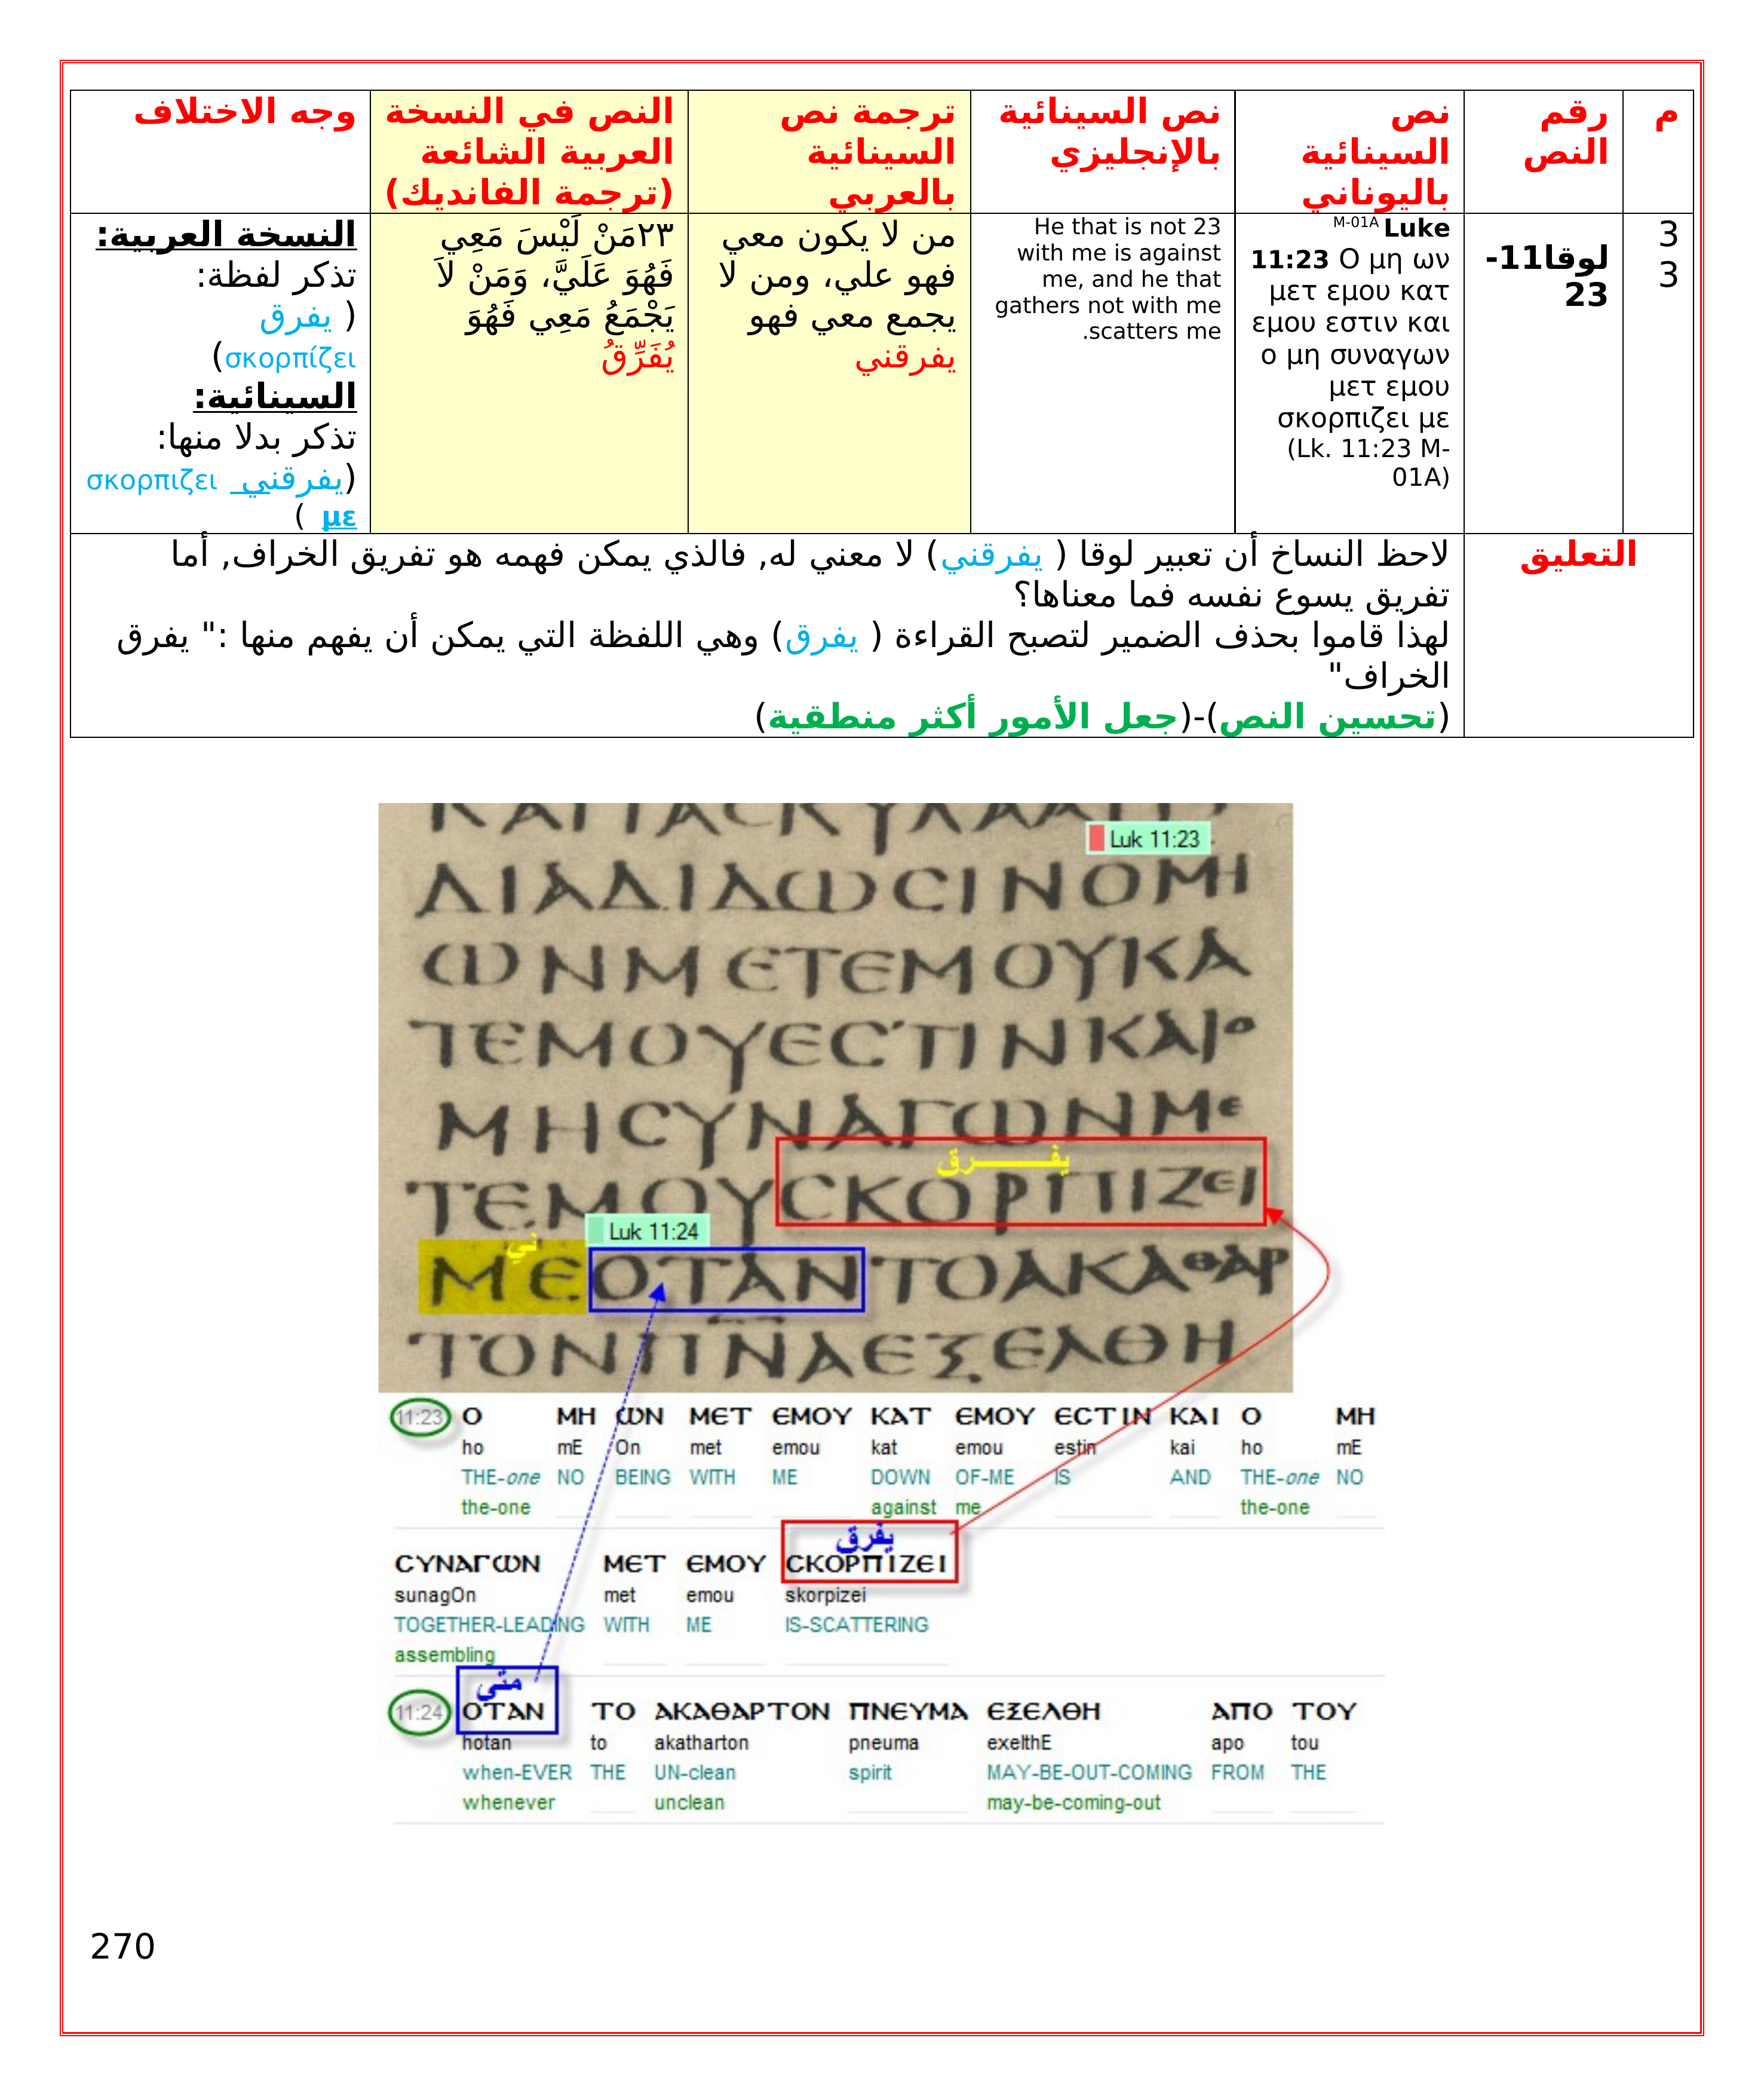 م
رقم
النص
نص
السينائية
باليوناني
نص السينائية
بالإنجليزي
ترجمة نص
السينائية
بالعربي
النص في النسخة
العربية الشائعة
(ترجمة الفانديك)
وجه الاختلاف
3
3
لوقا11-
23
M-01A Luke
11:23 Ο μη ων
μετ εμου κατ
εμου εστιν και
ο μη συναγων
μετ εμου
σκορπιζει με
(Lk. 11:23 M-
01A)
He that is not 23
with me is against
me, and he that
gathers not with me
scatters me.
من لا يكون معي
فهو علي، ومن لا
يجمع معي فهو
يفرقني
٢٣مَنْ لَيْسَ مَعِي
فَهُوَ عَلَيَّ، وَمَنْ لاَ
يَجْمَعُ مَعِي فَهُوَ
يُفَرِّقُ
النسخة العربية:
تذكر لفظة:
( يفرق
σκορπίζει)
السينائية:
تذكر بدلا منها:
(يفرقني σκορπιζει
με )
التعليق
لاحظ النساخ أن تعبير لوقا ( يفرقني) لا معني له, فالذي يمكن فهمه هو تفريق الخراف, أما
تفريق يسوع نفسه فما معناها؟
لهذا قاموا بحذف الضمير لتصبح القراءة ( يفرق) وهي اللفظة التي يمكن أن يفهم منها :" يفرق
الخراف"
(تحسين النص)-(جعل الأمور أكثر منطقية)
Luk 11:23
ΔΙΑΔΙΔΩCΙΝΟΜΗ
ΩΝΜΕΤΕΜΟΥΚΑ
ΤΕΜΟΥΕCΤΙΝΚΑΙΟ
ΜΗCΥΝΑΓΩΝΜΕ
يفــــرق
ΤΕΜΟΥCΚΟΡΠΙΖΕΙ
ني
Luk 11:24
ΜΕΟΤΑΝΤΟΑΚΑΘΑΡ
ΤΟΝΠΝΑΕΞΕΛΘΗ
11:23 Ο ΜΗ ΩΝ ΜΕΤ ΕΜΟΥ ΚΑΤ ΕΜΟΥ ΕCΤΙΝ ΚΑΙ Ο ΜΗ
ho mE On met emou kat emou estin kai ho mE
THE-one NO BEING WITH ME DOWN OF-ME IS AND THE-one NO
the-one against me the-one
يفرق
CΥΝΑΓΩΝ ΜΕΤ ΕΜΟΥ CΚΟΡΠΙΖΕΙ
sunagOn met emou skorpizei
TOGETHER-LEADING WITH ME IS-SCATTERING
assembling
متى
11:24 ΟΤΑΝ ΤΟ ΑΚΑΘΑΡΤΟΝ ΠΝΕΥΜΑ ΕΞΕΛΘΗ ΑΠΟ ΤΟΥ
hotan to akatharton pneuma exelthE apo tou
when-EVER THE UN-clean spirit MAY-BE-OUT-COMING FROM THE
whenever unclean may-be-coming-out
270